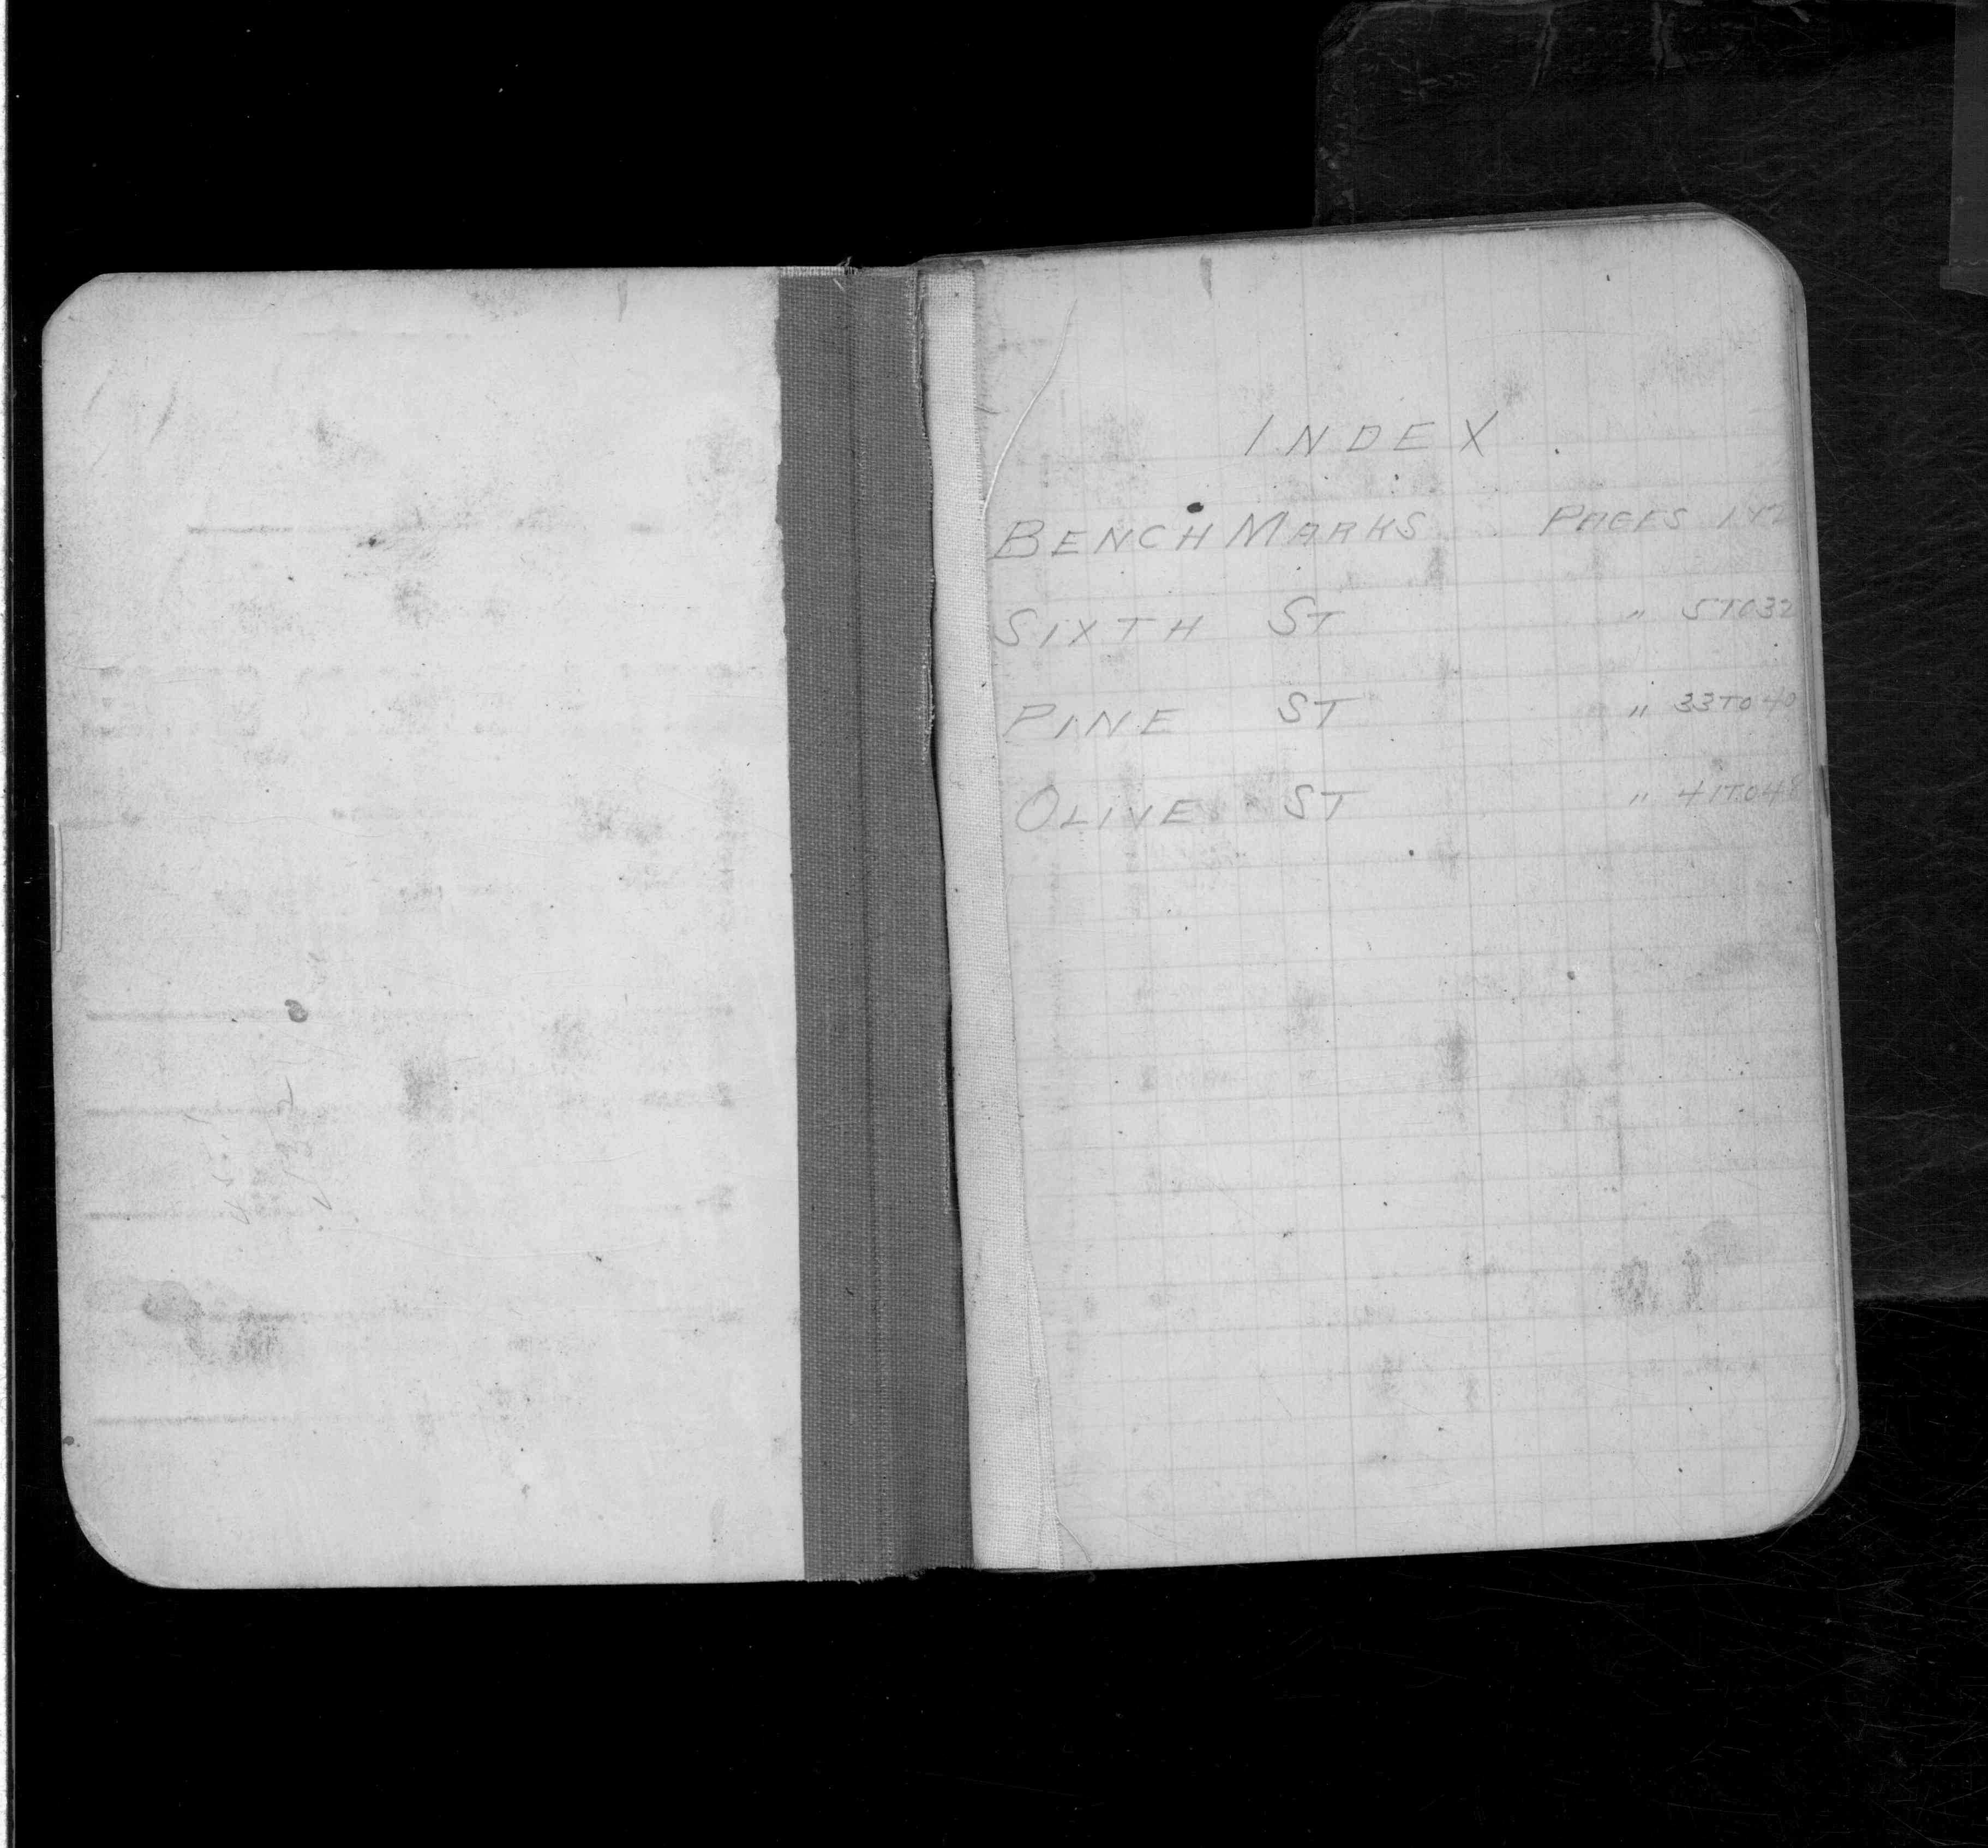 INDEX
BENCH MARKS PAGES 1 & 2
SIXTH ST " 5 TO 32
PINE ST " 33 TO 40
OLIVE ST " 41 TO 48